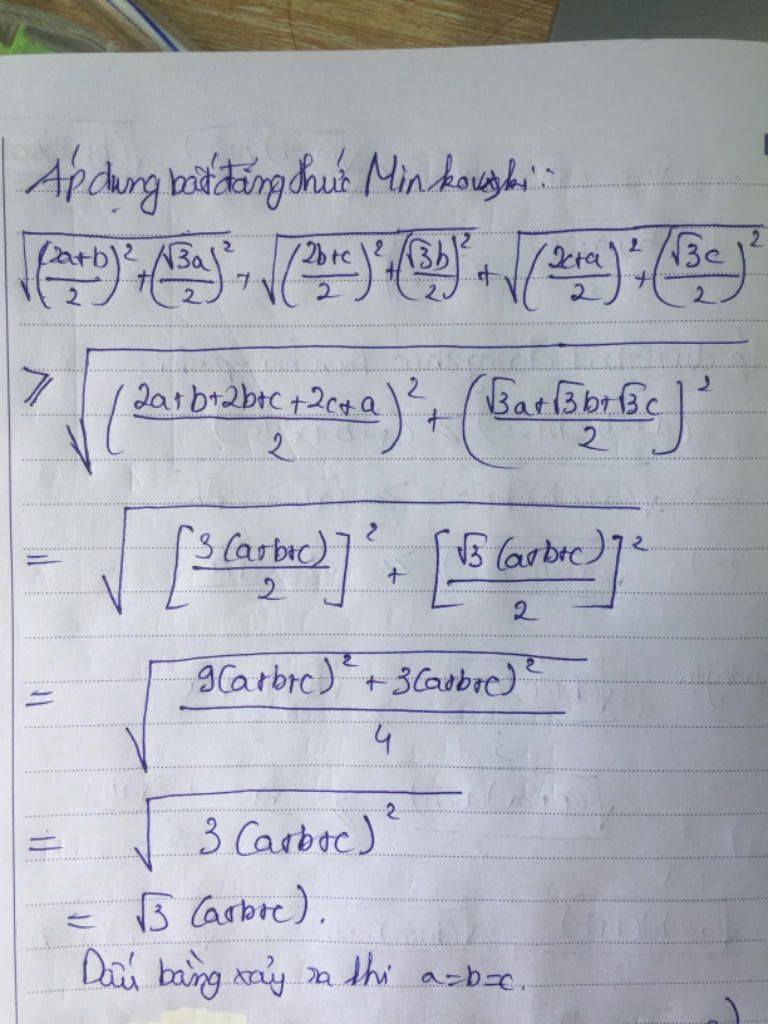 Áp dụng bất đẳng thức Minkowski:
√((2a+b)/2)² + (√3a/2)² + √((2b+c)/2)² + (√3b/2)² + √((2c+a)/2)² + (√3c/2)²
≥ √((2a+b+2b+c+2c+a)/2)² + ((√3a+√3b+√3c)/2)²
= √[3(a+b+c)/2]² + [√3(a+b+c)/2]²
= √(9(a+b+c)² + 3(a+b+c)²)/4
= √3(a+b+c)²
= √3 (a+b+c).
Dấu bằng xảy ra khi a=b=c.